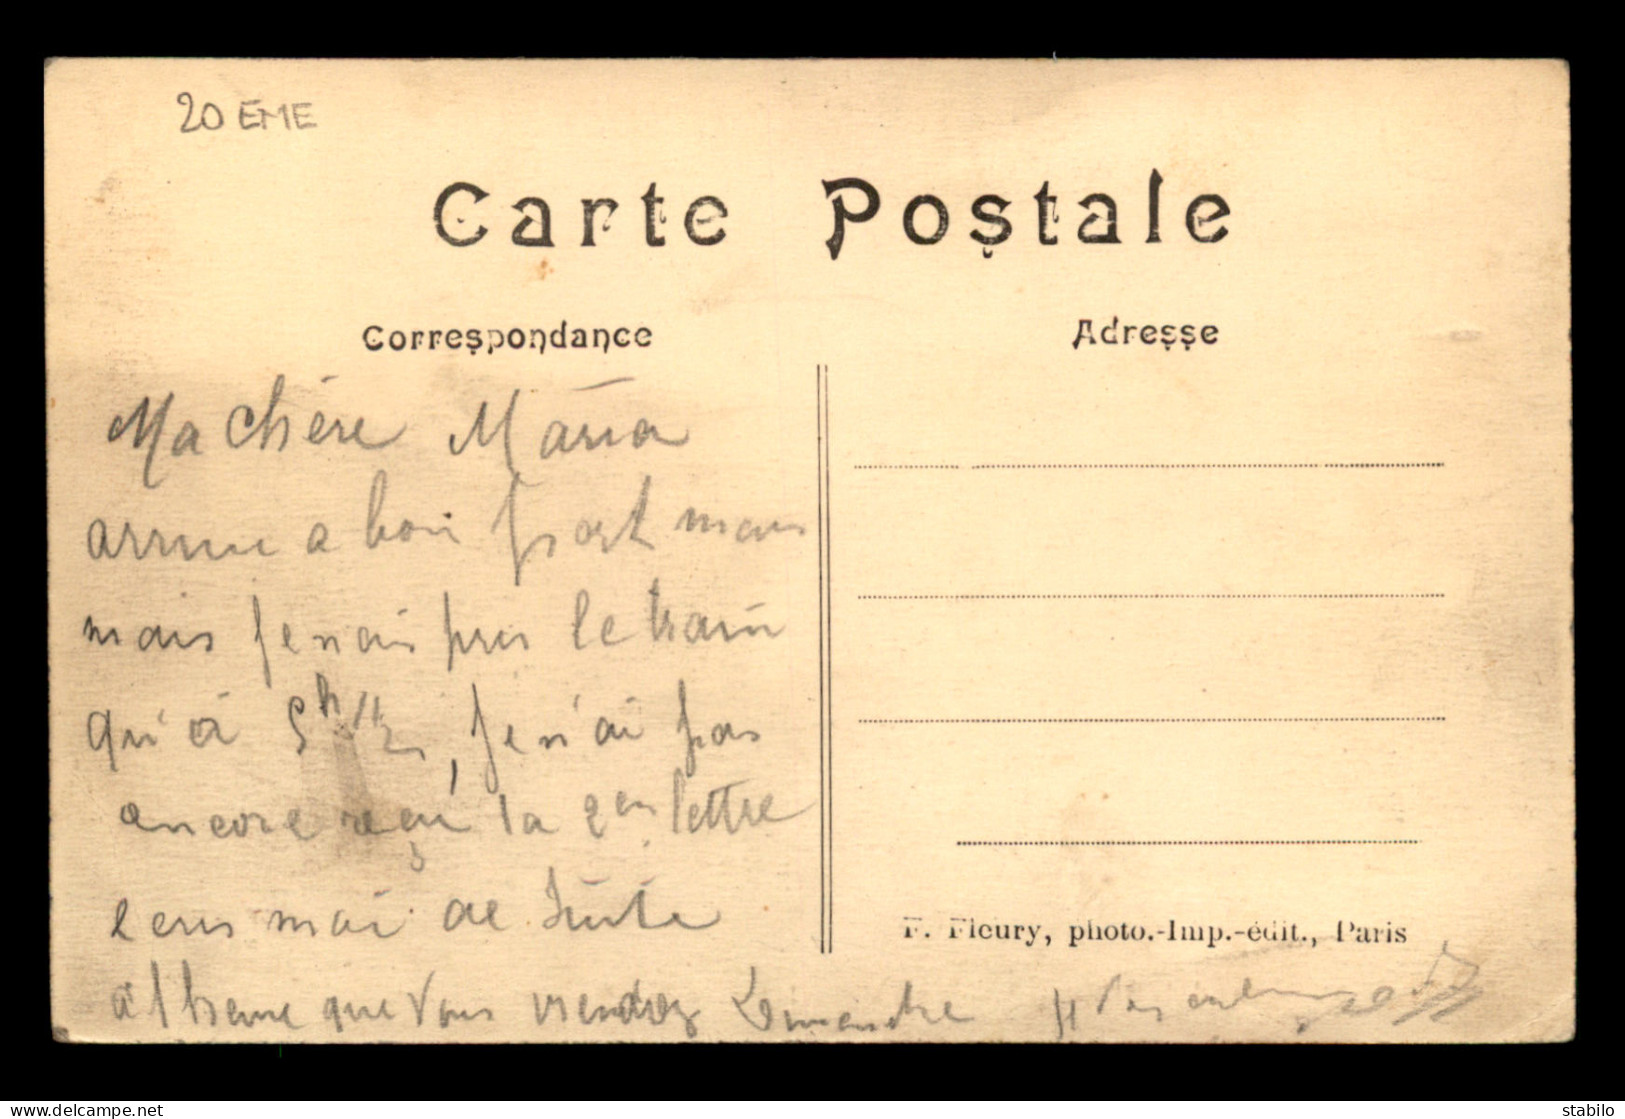 20 EME
Carte Postale
Correspondance
Adresse
Ma chère Maria
arrive a bon port mais
mais je nai pris le train
qu'à 5h 1/2, je n'ai pas
encore reçu la 2em lettre
ecris moi de suite
à l'heure que vous viendrez Dimanche
F. Fleury, photo.-Imp.-édit., Paris
delcampe.net
stabilo